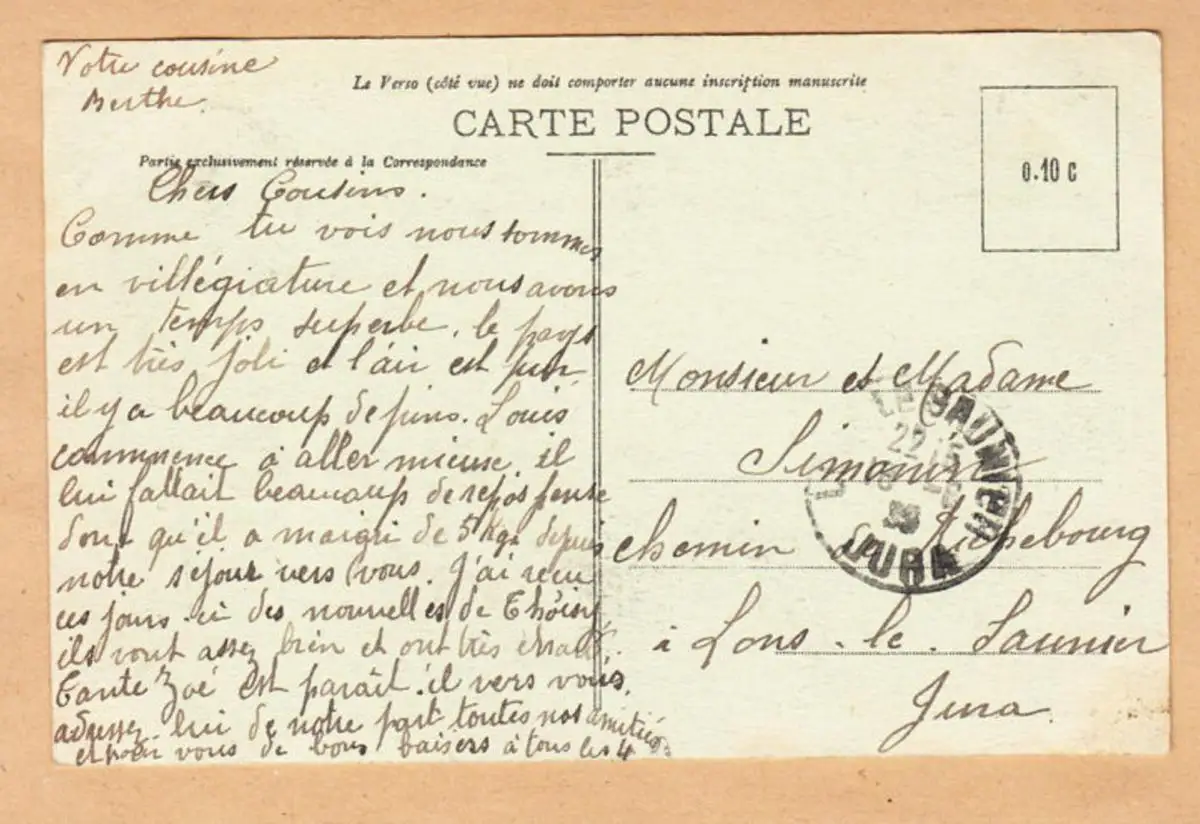 Votre cousine
Berthe.
Le Verso (côté vue) ne doit comporter aucune inscription manuscrite
CARTE POSTALE
Partie exclusivement réservée à la Correspondance
0.10 C
Chers Cousins.
Comme tu vois nous sommes
en villégiature et nous avons
un temps superbe. le pays
est très joli et l'air est pur,
il y a beaucoup de pins. Louis
commence à aller mieux, il
lui fallait beaucoup de repos pense
donc qu'il a maigri de 5 Kgs depuis
notre séjour vers vous. J'ai reçu
ces jours-ci des nouvelles de Thoisy
ils vont assez bien et ont très
Tante Zoé est parait-il vers vous,
adressez lui de notre part toutes nos amitiés
et pour vous de bons baisers à tous les 4
Monsieur et Madame
Simonin
chemin Richebourg
à Lons-le-Saunier
Jura
LE SAUNIER
22
JURA